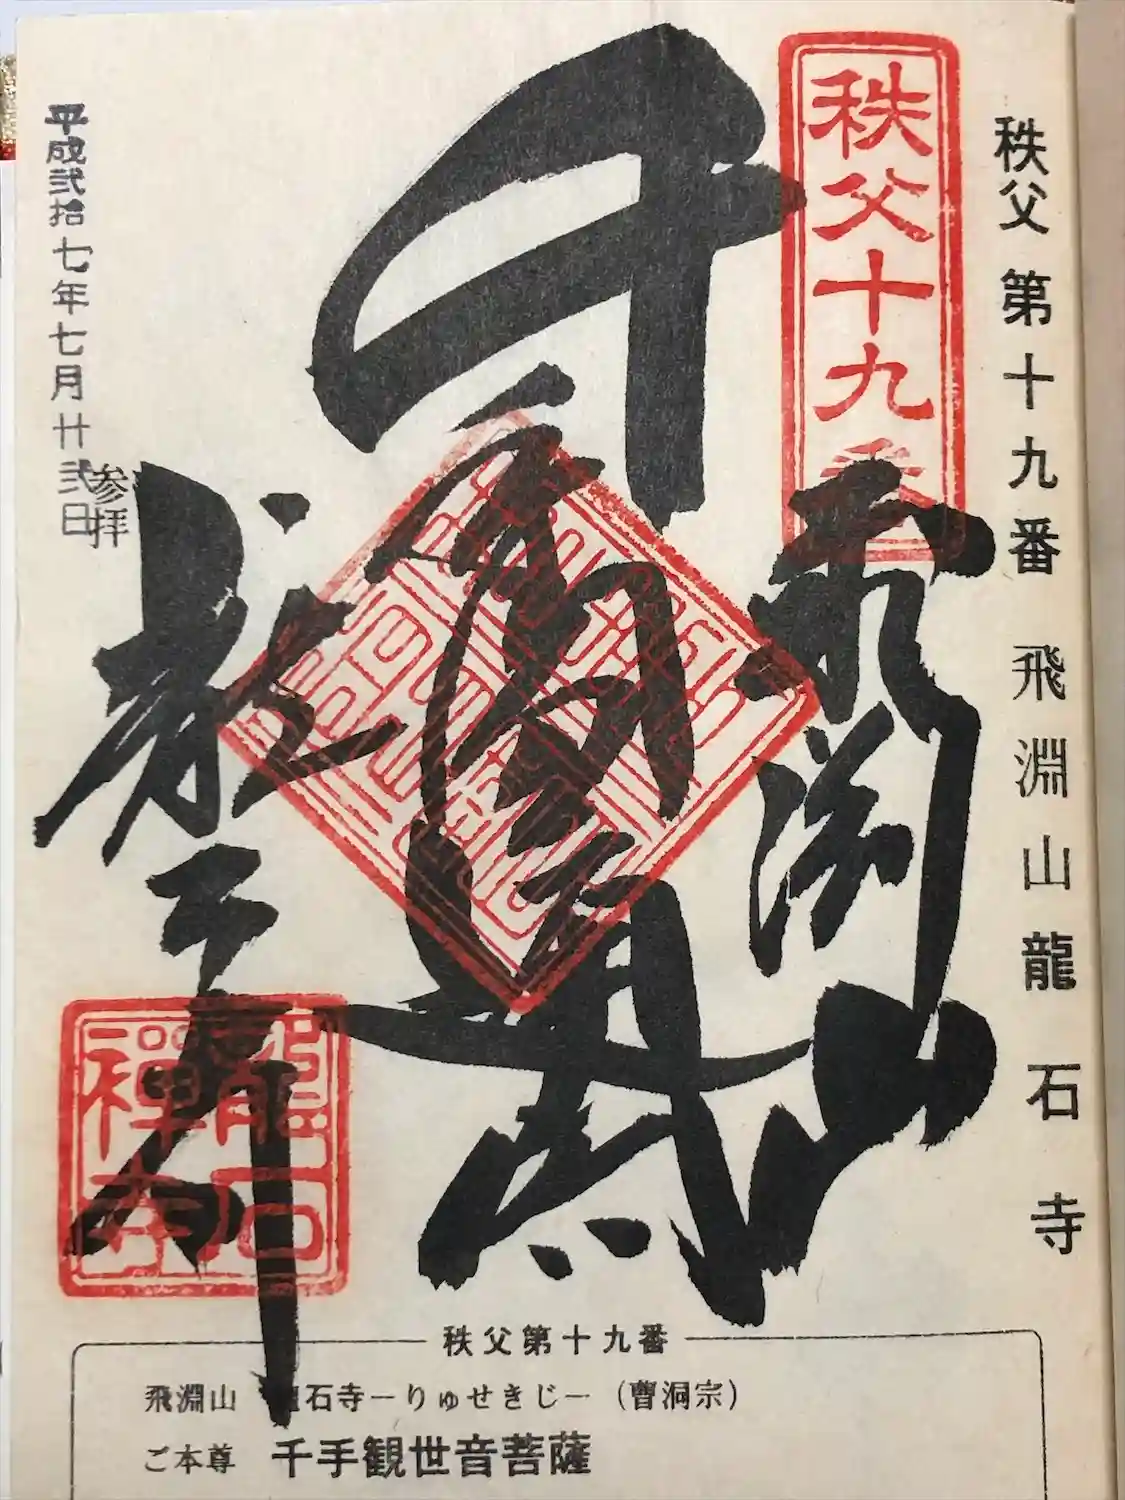 秩父第十九番 飛淵山龍石寺
秩父十九番
飛淵山
千手
平成弐拾七年七月廿弐日
参拝
龍石
禅寺
秩父第十九番
飛淵山 石寺ーりゅせきじー（曹洞宗）
ご本尊 千手観世音菩薩